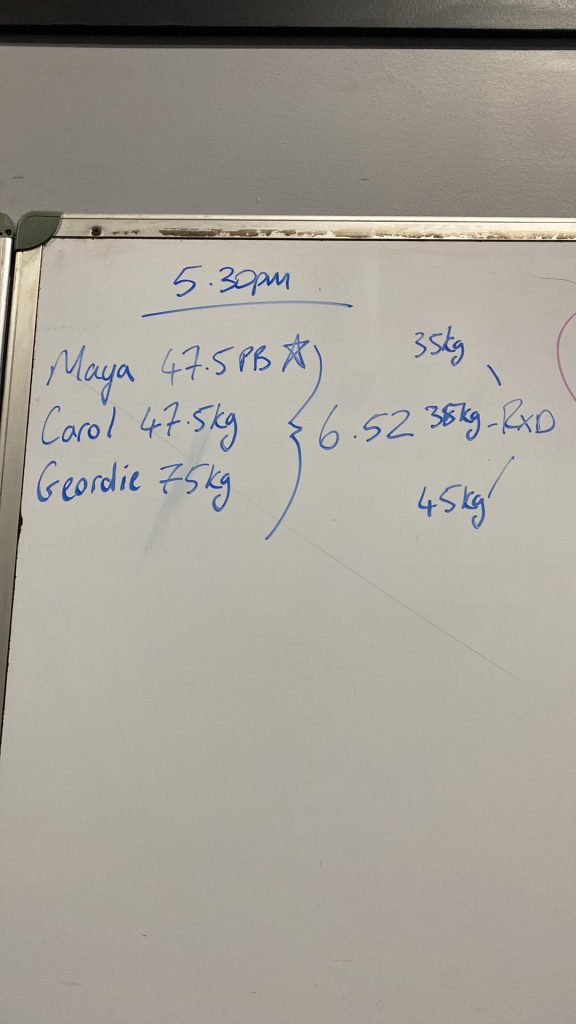 5.30pm
Maya 47.5 PB
Carol 47.5kg
Geordie 75kg
6.52
35kg
38kg - RxD
45kg